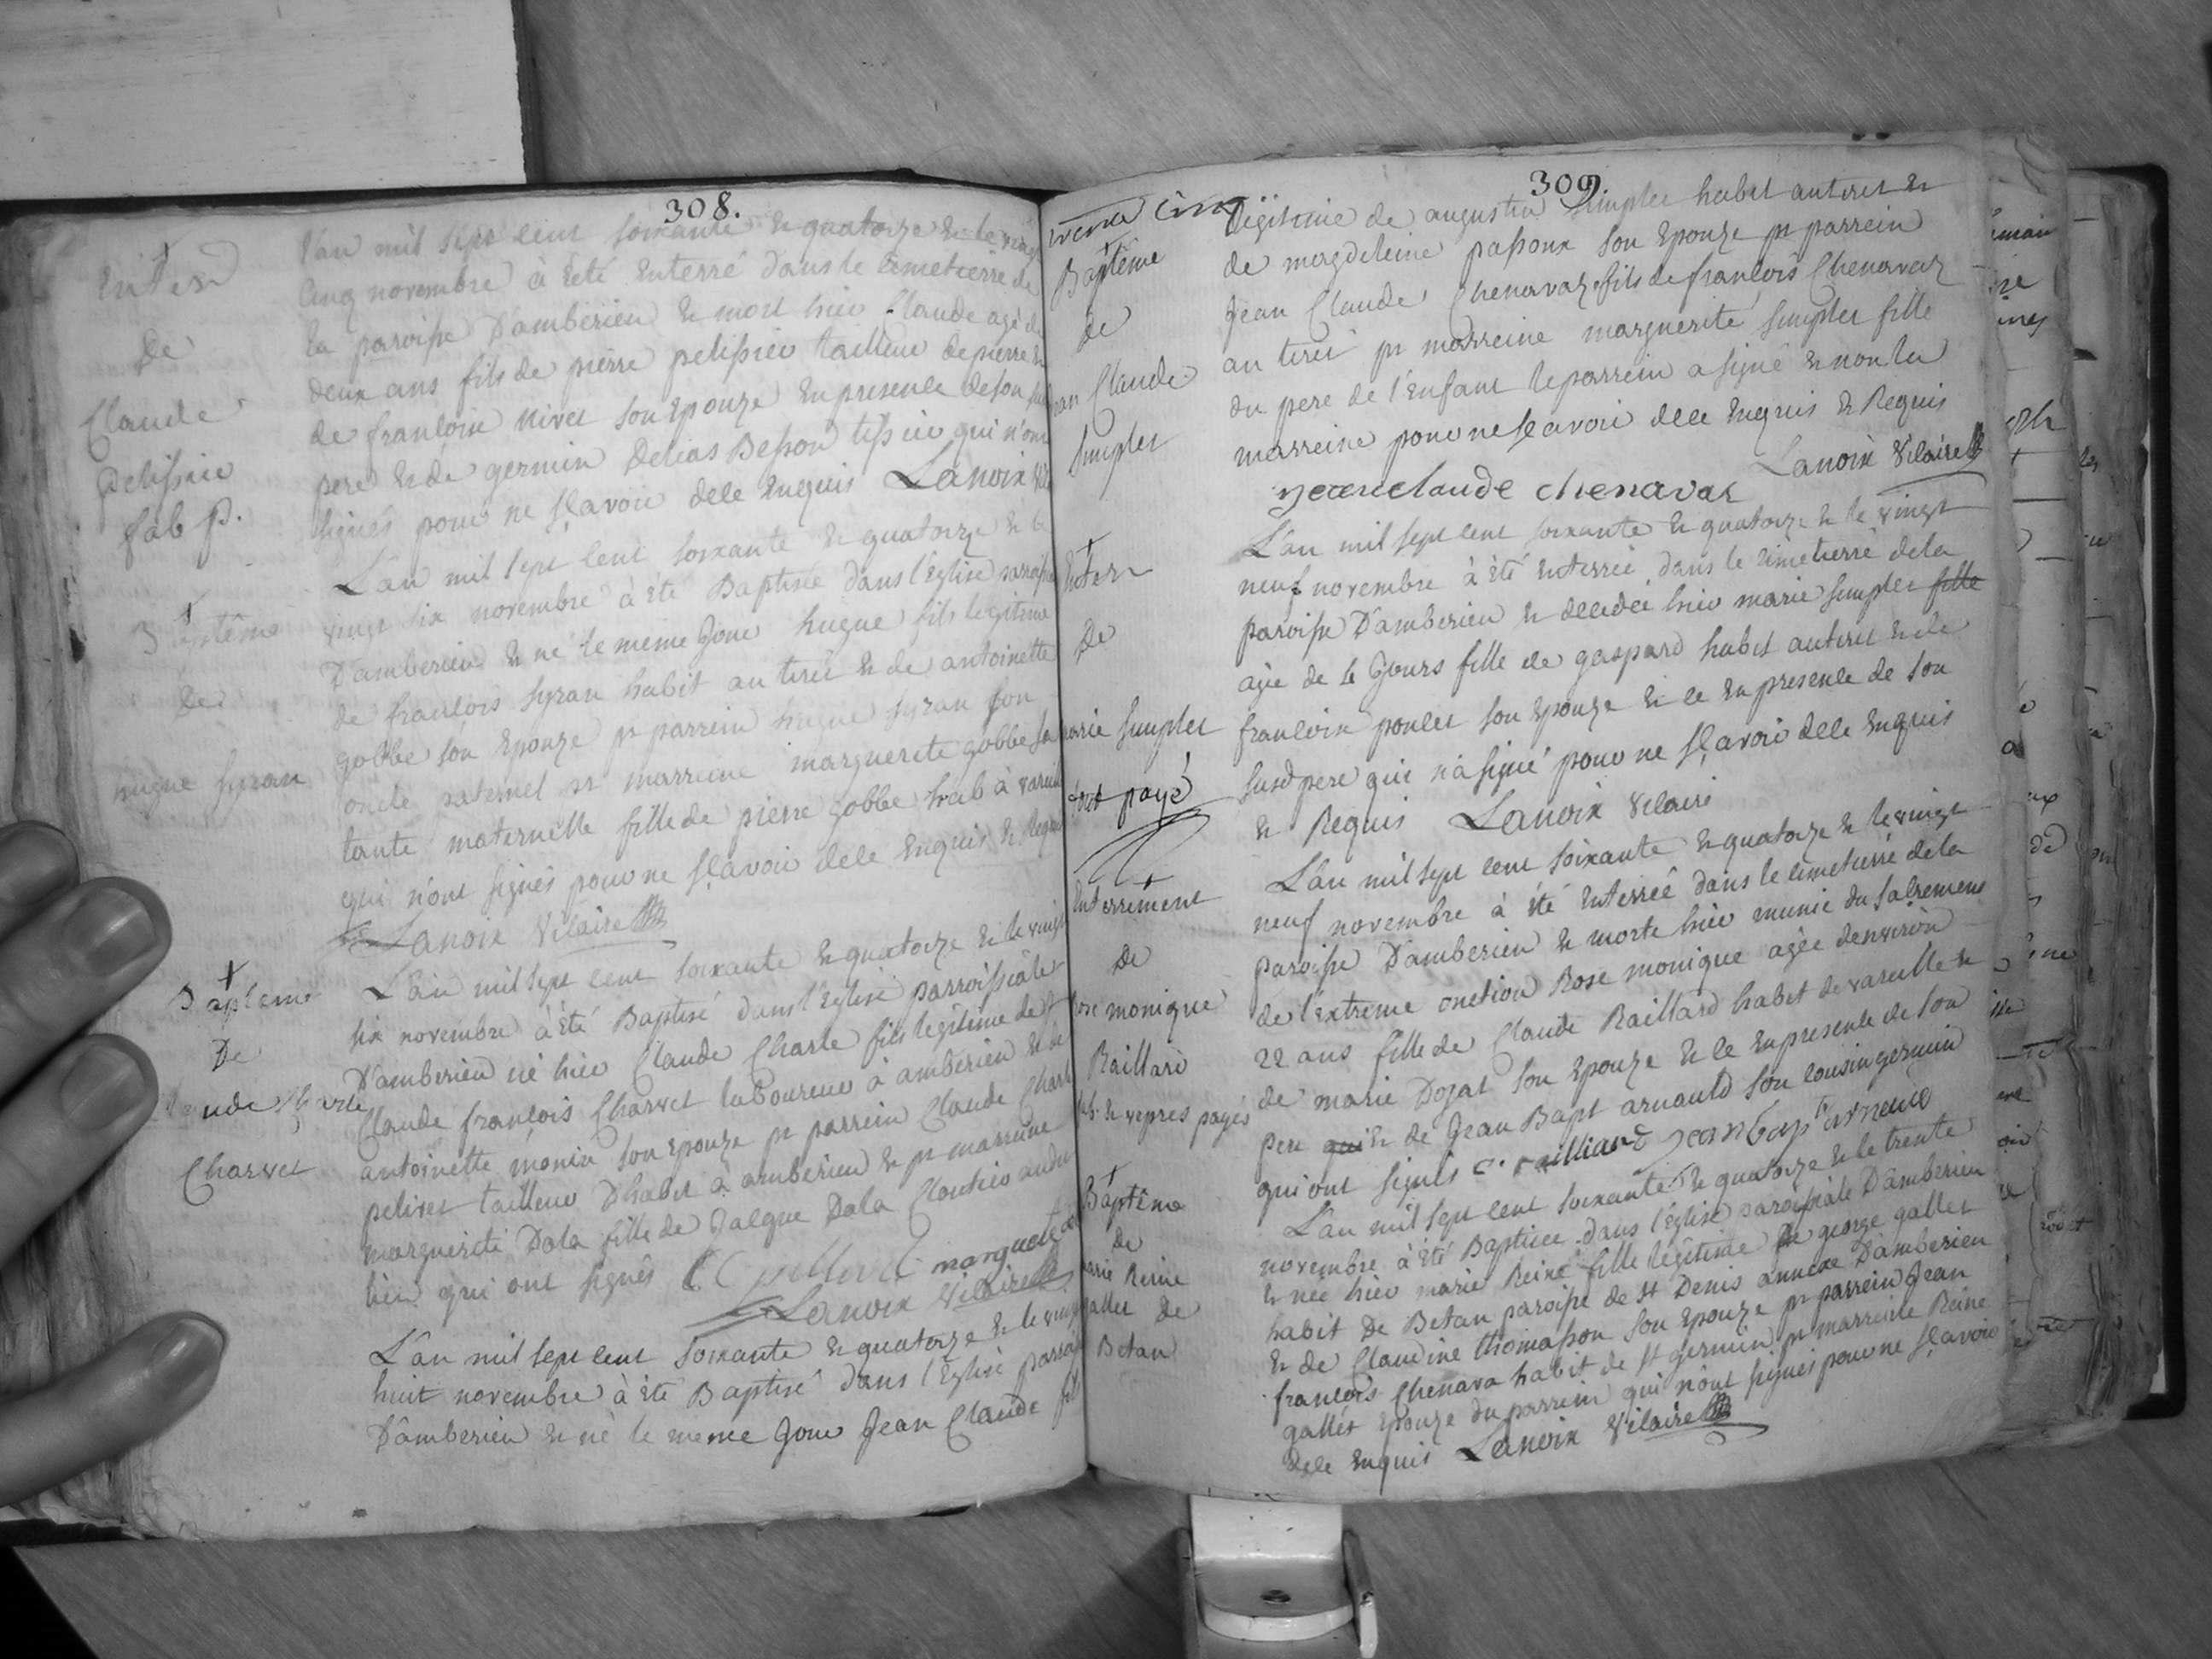 308.
Enter
De
Claude
Pelissie
fab p.
l'an mil sept cent soixante & quatorze & le vingt
cinq novembre à été enterré dans le cimetierre de
la paroisse D'amberieu & mort hier Claude agé de
deux ans fils de pierre pelissier tailleur de pierre &
de francoise nivet son Epouze En presence de son
pere & de germain Delias Besson tissier qui n'ont
signés pour ne sçavoir dele Enquis Lanoix
Baptême
de
hugue syran
L'an mil sept cent soixante & quatorze & le
vingt six novembre à été Baptisé dans l'Eglise
D'amberieu & né le même Jour hugue fils legitime
de francois syran habit au tiret & de antoinette
gobbe son Epouze pr parrein hugue syran son
oncle paternel pr marreine marguerite gobbe sa
tante maternelle fille de pierre gobbe hab à vareille
qui n'ont signés pour ne sçavoir dele Enquis & Requis
Lanoix Vicaire
Bapteme
De
Claude Charle
Charvet
L'an mil sept cent soixante & quatorze & le vingt
six novembre à été Baptisé dans l'Eglise parroissiale
D'amberieu né hier Claude Charle fils legitime de
Claude francois Charvet laboureur à amberieu & de
antoinette monin son epouze pr parrein Claude Charle
pelivet tailleur D'habit à amberieu & pr marreine
marguerite Dala fille de Jacque Dala Cloutier audit
lieu qui ont signés marguete
Lanoix Vicaire
L'an mil sept cent soixante & quatorze & le vingt
huit novembre à été Baptisé dans l'Eglise
D'amberieu & né le meme Jour Jean Claude fils
309.
Baptême
de
Jean Claude
simplet
legitime de augustin simplet habit autiret &
de magdeleine passoux son epouze pr parrein
Jean Claude Chenavaz fils de francois Chenavaz
au tiret pr marreine marguerite simplet fille
du pere de l'Enfant le parrein a signé & non la
marreine pour ne sçavoir dele Enquis & Requis
Jean claude chenavaz Lanoix Vicaire
Enter
De
marie simplet
tout payé
L'an mil sept cent soixante & quatorze & le vingt
neuf novembre à été enterrée dans le cimetierre dela
paroisse D'amberieu & decedée hier marie simplet fille
agée de 4 Jours fille de gaspard habit autiret & de
francoise poulet son epouze & ce En presence de son
susd pere qui n'a signé pour ne sçavoir dele Enquis
& Requis Lanoix Vicaire
Enterrement
De
Rose monique
Raillard
vepres payés
L'an mil sept cent soixante & quatorze & le vingt
neuf novembre à été Enterrée dans le cimetierre dela
paroisse D'amberieu & morte hier munie du sacrement
de l'extreme onction Rose monique agée denviron
22 ans fille de Claude Raillard habit de vareille &
de marie Dojat son epouze & ce En presence de son
pere qui & de Jean Bapt arnauld son cousin germain
qui ont signés C. railliard jean bapte arnaud
Baptême
de
marie Reine
gallet de
Betan
L'an mil sept cent soixante & quatorze & le trente
novembre à été Baptisée dans l'Eglise paroissiale D'amberieu
& née hier marie Reine fille legitime de george gallet
habit De Betan paroisse de st Denis annexe D'amberieu
& de Claudine thomasson son epouze pr parrein Jean
francois Chenava habit de st germain pr marreine Reine
gallet epouze du parrein qui n'ont signés pour ne sçavoir
dele Enquis Lanoix Vicaire